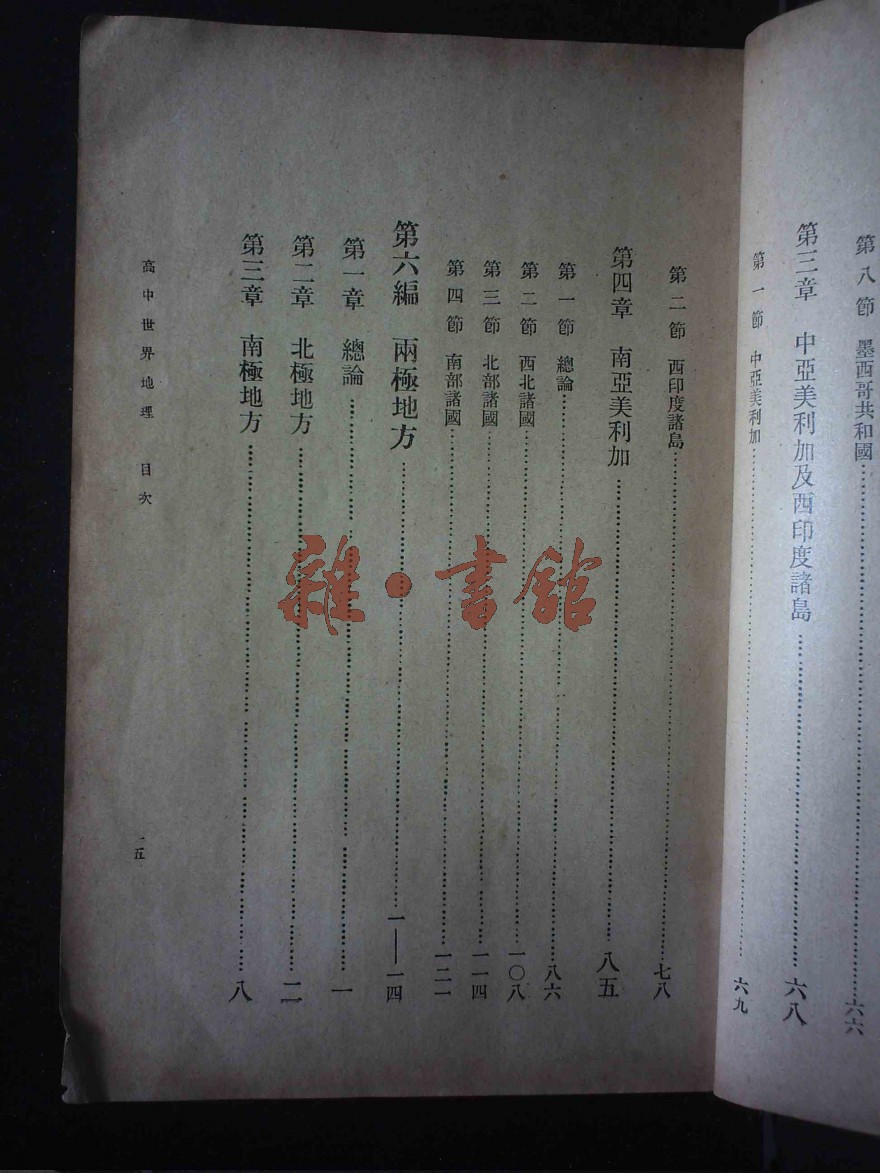 第八節 墨西哥共和國……六六
第三章 中亞美利加及西印度諸島……六八
第一節 中亞美利加……六九
第二節 西印度諸島……七八
第四章 南亞美利加……八五
第一節 總論……八六
第二節 西北諸國……一〇八
第三節 北部諸國……一一四
第四節 南部諸國……一二一
第六編 兩極地方……一——一四
第一章 總論……一
第二章 北極地方……二
第三章 南極地方……八
高中世界地理 目次 一五
雜·書館